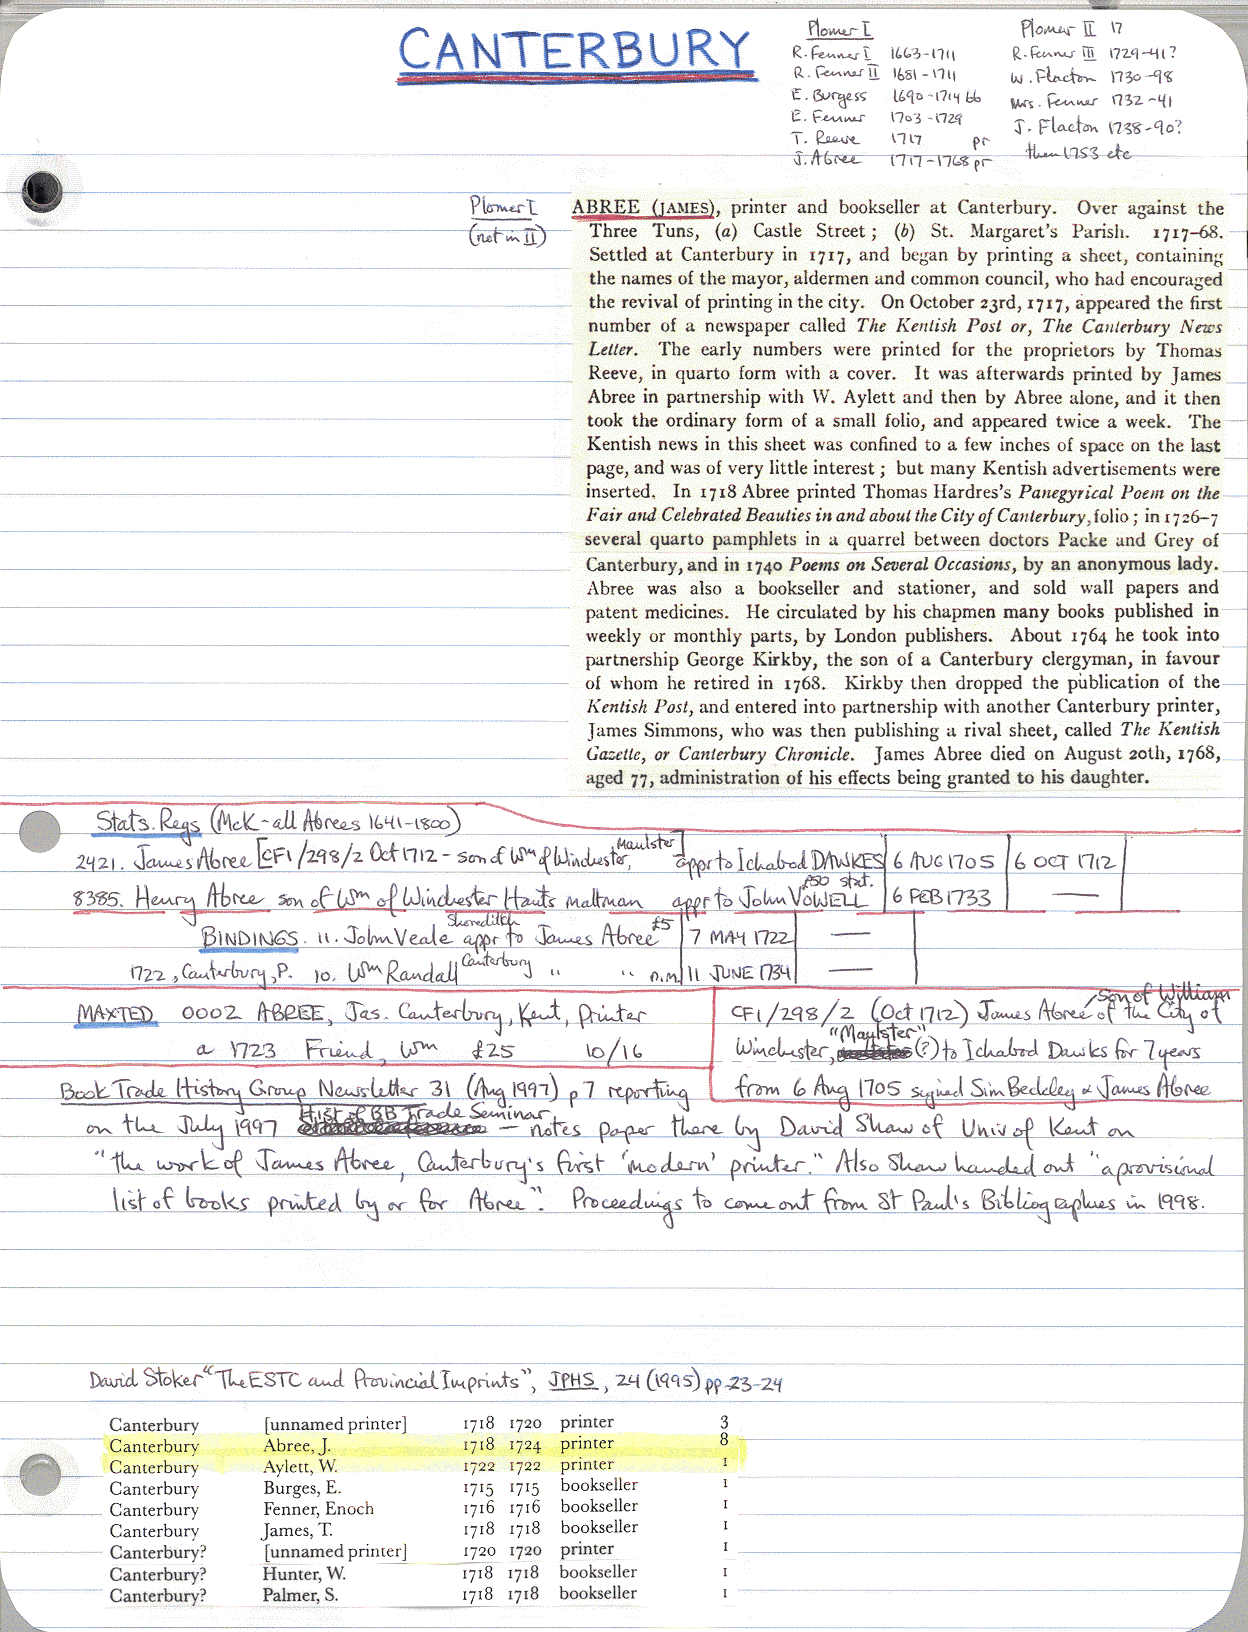 CANTERBURY
Plomer I
R. Fenner I 1663-1711
R. Fenner II 1681-1711
E. Burgess 1690-1714 bb
E. Fenner 1703-1729
T. Reeve 1717 pr
J. Abree 1717-1768 pr
Plomer II 17
R. Fenner III 1729-41?
W. Flacton 1730-98
Mrs. Fenner 1732-41
J. Flacton 1738-90?
then 1753 etc
Plomer I
(not in II)
ABREE (JAMES), printer and bookseller at Canterbury. Over against the
Three Tuns, (a) Castle Street; (b) St. Margaret's Parish. 1717-68.
Settled at Canterbury in 1717, and began by printing a sheet, containing
the names of the mayor, aldermen and common council, who had encouraged
the revival of printing in the city. On October 23rd, 1717, appeared the first
number of a newspaper called The Kentish Post or, The Canterbury News
Letter. The early numbers were printed for the proprietors by Thomas
Reeve, in quarto form with a cover. It was afterwards printed by James
Abree in partnership with W. Aylett and then by Abree alone, and it then
took the ordinary form of a small folio, and appeared twice a week. The
Kentish news in this sheet was confined to a few inches of space on the last
page, and was of very little interest; but many Kentish advertisements were
inserted. In 1718 Abree printed Thomas Hardres's Panegyrical Poem on the
Fair and Celebrated Beauties in and about the City of Canterbury, folio; in 1726-7
several quarto pamphlets in a quarrel between doctors Packe and Grey of
Canterbury, and in 1740 Poems on Several Occasions, by an anonymous lady.
Abree was also a bookseller and stationer, and sold wall papers and
patent medicines. He circulated by his chapmen many books published in
weekly or monthly parts, by London publishers. About 1764 he took into
partnership George Kirkby, the son of a Canterbury clergyman, in favour
of whom he retired in 1768. Kirkby then dropped the publication of the
Kentish Post, and entered into partnership with another Canterbury printer,
James Simmons, who was then publishing a rival sheet, called The Kentish
Gazette, or Canterbury Chronicle. James Abree died on August 20th, 1768,
aged 77, administration of his effects being granted to his daughter.
Stats. Regs (McK-all Abrees 1641-1800)
2421. James Abree [CF1/298/2 Oct 1712 - son of Wm of Winchester, Maulster] appr to Ichabod DAWKES 6 AUG 1705 6 OCT 1712
8385. Henry Abree son of Wm of Winchester Hants maltman appr to John VOWELL £50 stat. 6 FEB 1733 —
BINDINGS. 11. John Veale Shoreditch appr to James Abree £5 7 MAY 1722 —
1722, Canterbury, P. 10. Wm Randall Canterbury " " n.m. 11 JUNE 1734 —
MAXTED 0002 ABREE, Jas. Canterbury, Kent, Printer
a 1723 Friend, Wm £25 10/16
CF1/298/2 (Oct 1712) James Abree son of William of the City of
Winchester, "Maulster" (?) to Ichabod Dawks for 7 years
from 6 Aug 1705 signed Sim Beckley & James Abree
Book Trade History Group Newsletter 31 (Aug 1997) p 7 reporting
on the July 1997 Hist of BB Trade Seminar - notes paper there by David Shaw of Univ of Kent on
"the work of James Abree, Canterbury's first 'modern' printer." Also Shaw handed out "a provisional
list of books printed by or for Abree". Proceedings to come out from St Paul's Bibliographies in 1998.
David Stoker "The ESTC and Provincial Imprints", JPHS, 24 (1995) pp 23-24
Canterbury [unnamed printer] 1718 1720 printer 3
Canterbury Abree, J. 1718 1724 printer 8
Canterbury Aylett, W. 1722 1722 printer 1
Canterbury Burges, E. 1715 1715 bookseller 1
Canterbury Fenner, Enoch 1716 1716 bookseller 1
Canterbury James, T. 1718 1718 bookseller 1
Canterbury? [unnamed printer] 1720 1720 printer 1
Canterbury? Hunter, W. 1718 1718 bookseller 1
Canterbury? Palmer, S. 1718 1718 bookseller 1